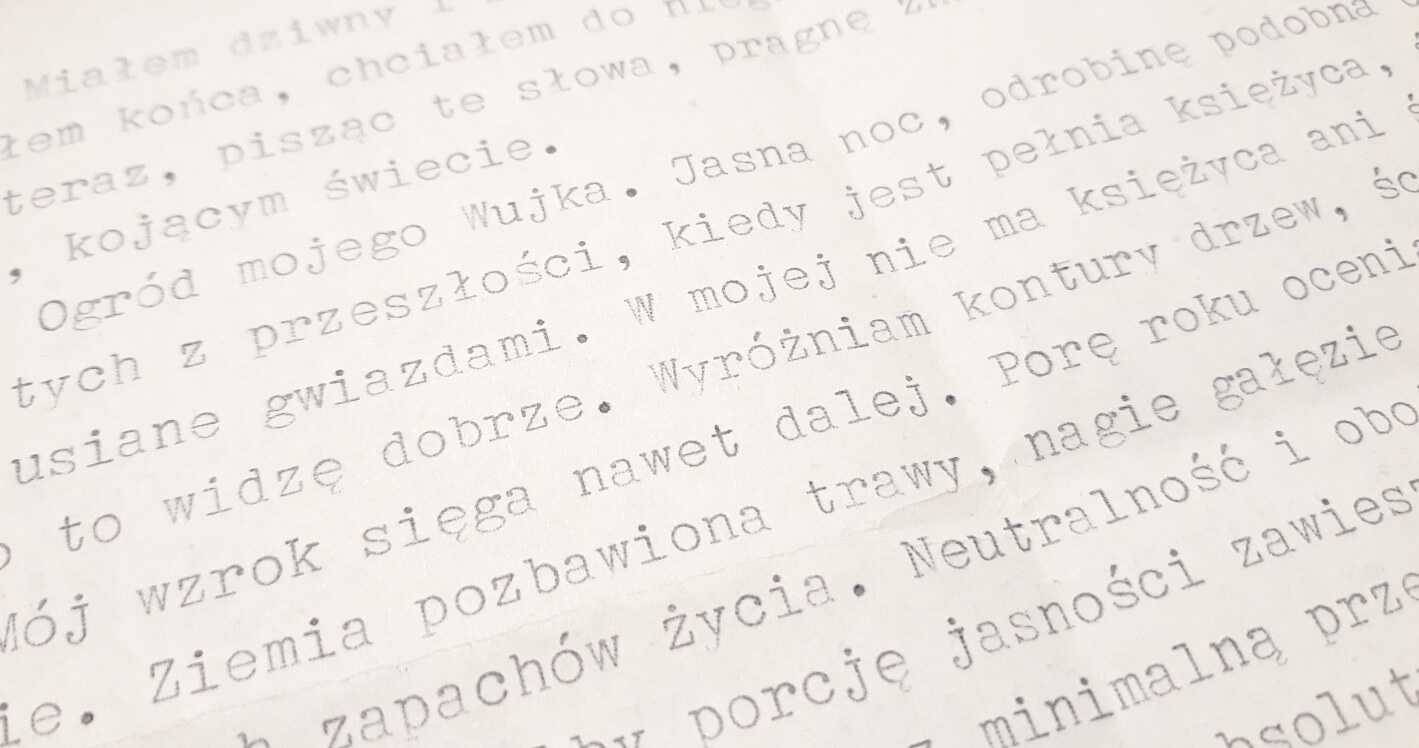 Miałem dziwny i
łem końca, chciałem do nieg
teraz, pisząc te słowa, pragnę
, kojącym świecie.
Ogród mojego Wujka. Jasna noc, odrobinę podobna
tych z przeszłości, kiedy jest pełnia księżyca,
usiane gwiazdami. W mojej nie ma księżyca ani ś
o to widzę dobrze. Wyróżniam kontury drzew, śc
Mój wzrok sięga nawet dalej. Porę roku ocenia
ie. Ziemia pozbawiona trawy, nagie gałęzie
h zapachów życia. Neutralność i obo
by porcję jasności zawiesz
z minimalną prze
bsolut